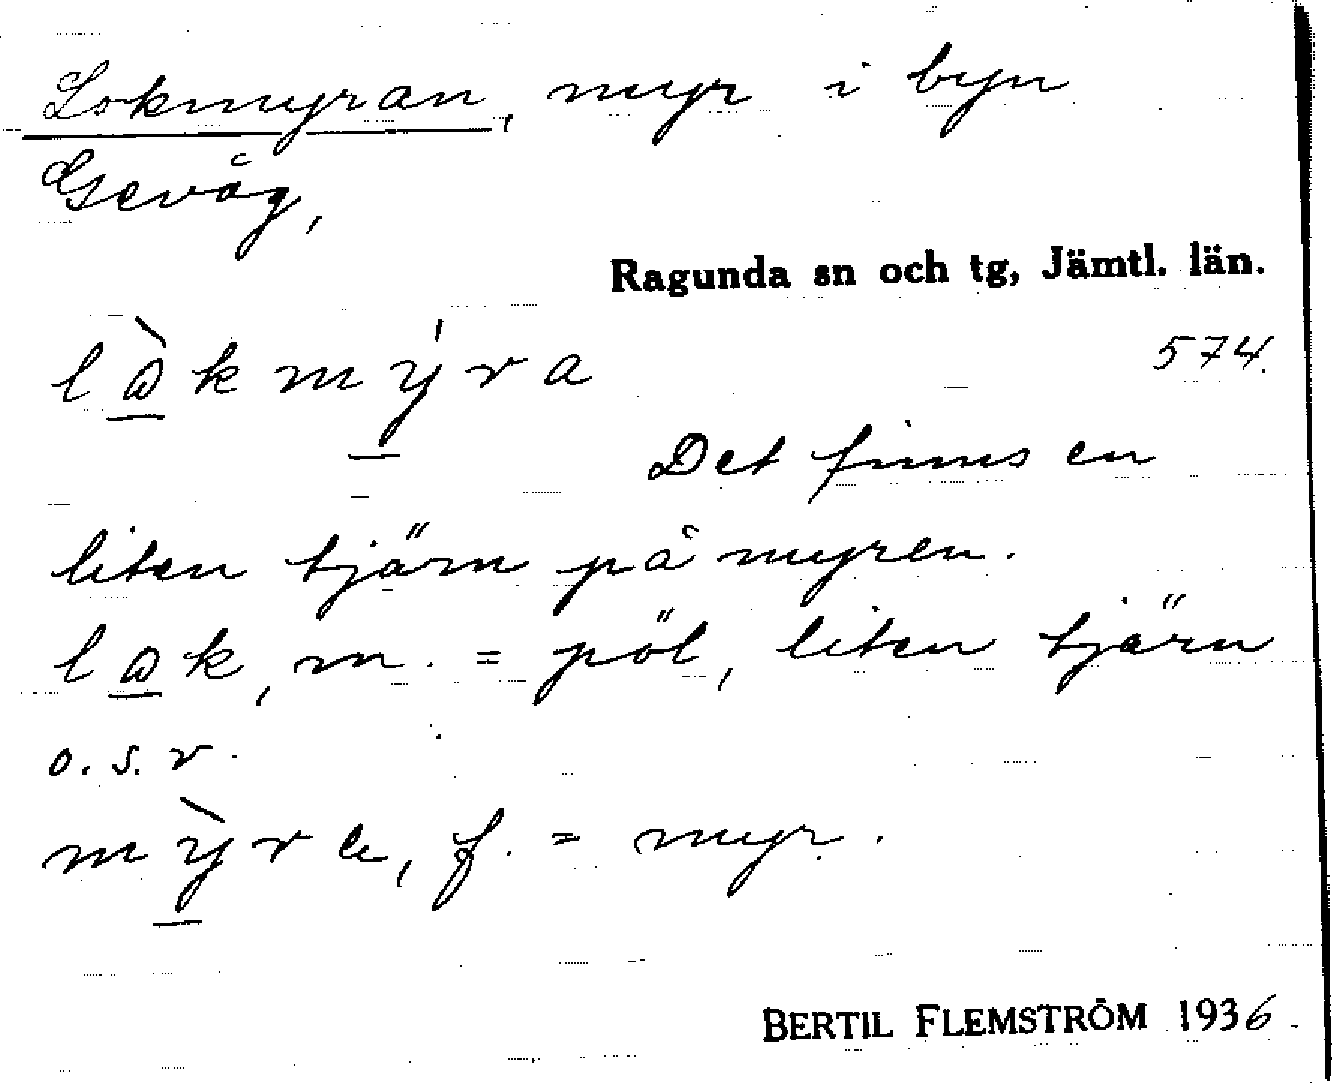 Lokmyran, myr i byn
Gevåg,
Ragunda sn och tg, Jämtl. län.
lɷ̀kmýra 574.
Det finns en
liten tjärn på myren.
lɷk, m. = pöl, liten tjärn
o.s.v.
mỳre, f. = myr.
BERTIL FLEMSTRÖM 1936.